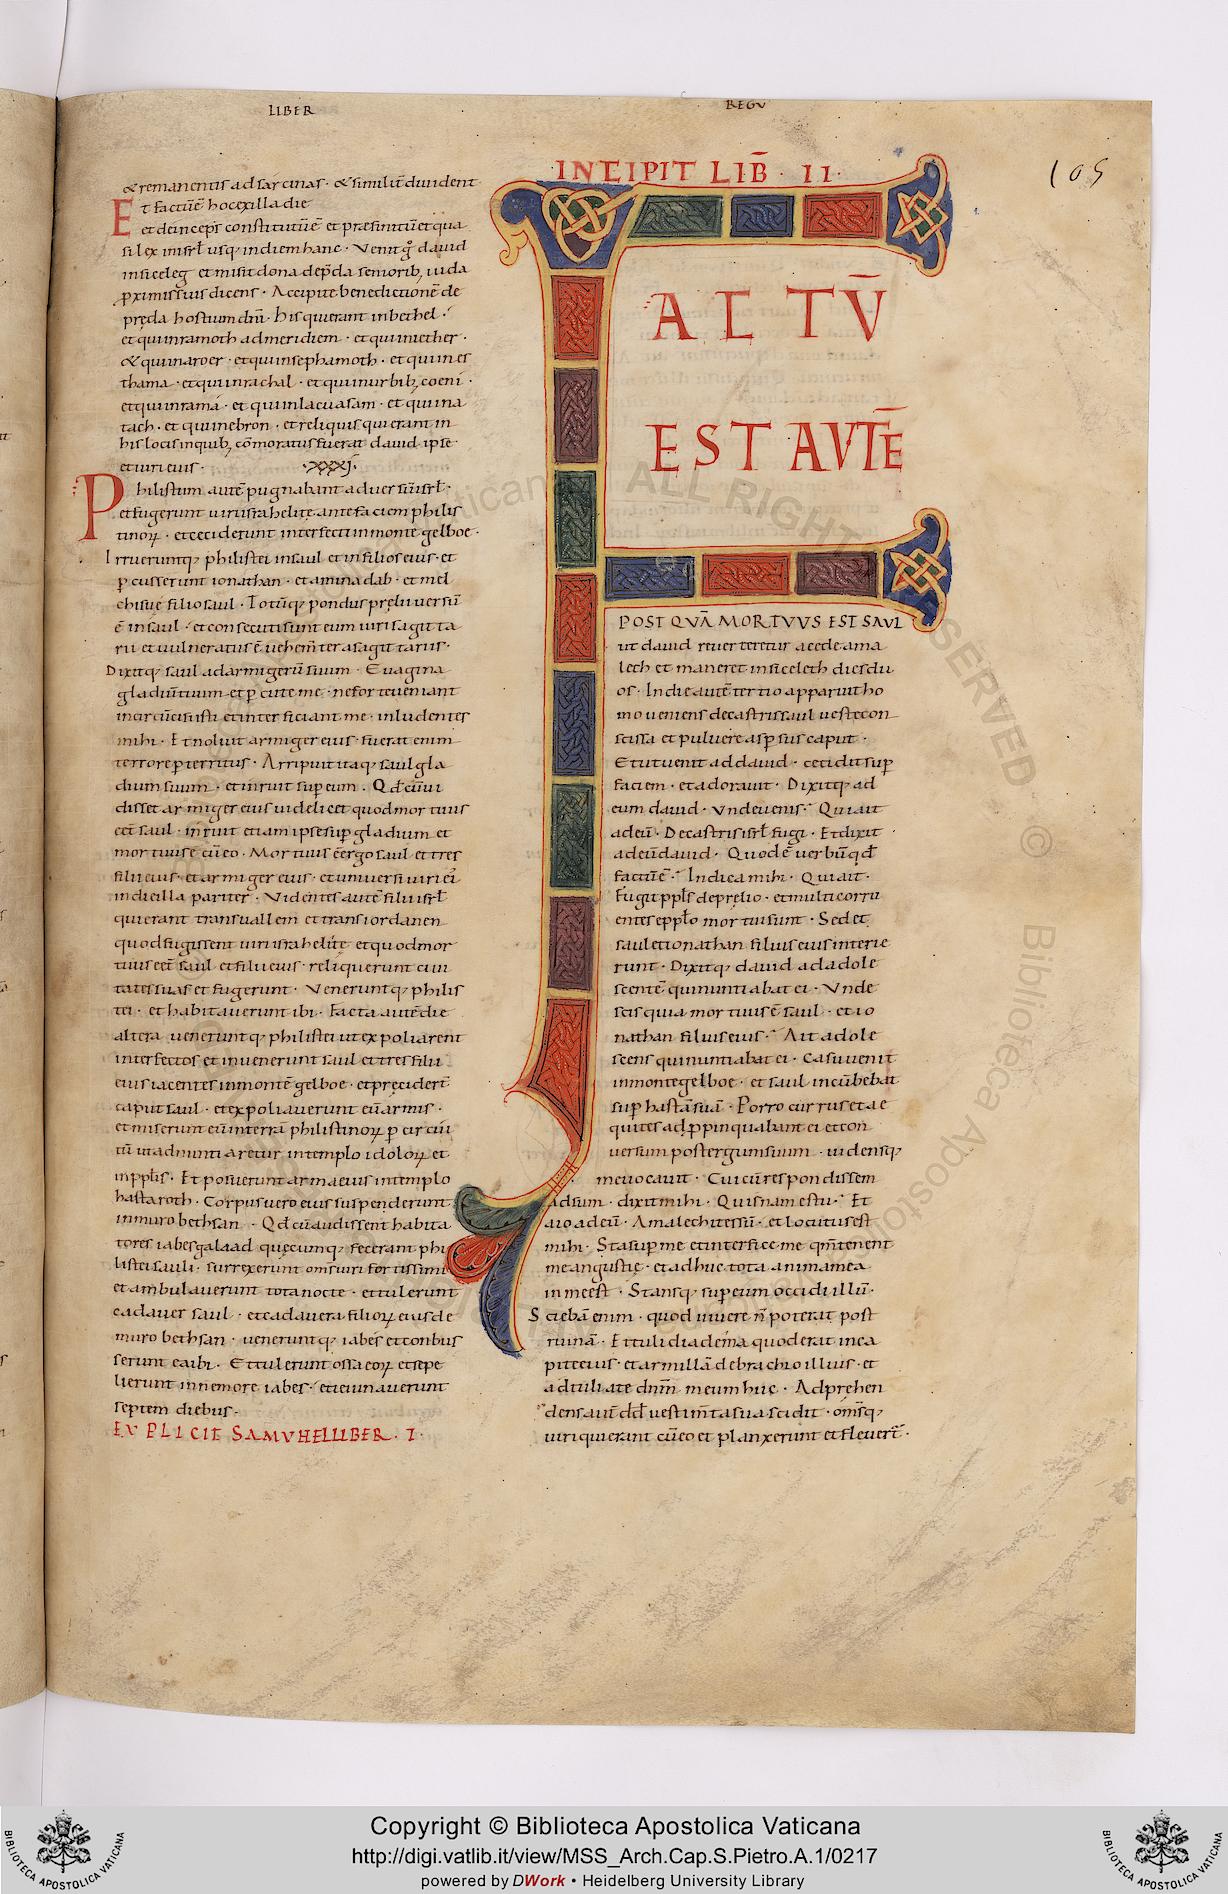 LIBER
REGV
105
& remanentis ad sarcinas · & similit̄ diuident
Et factū ē hoc ex illa die
et deinceps constitutū ē et praefinitū et qua
si lex in isrl̄ usq; in diem hanc · Venit g̊ dauid
in siceleg et misit dona de p̄da seniorib; iuda
p̄ximis suis dicens · Accipite benedictionē de
pręda hostium dn̄i · his qui erant in bethel ·
et qui in ramoth ad meridiem · et qui in iether ·
& qui in aroer · et qui in sephamoth · et qui in es
thama · et qui in rachal · et qui in urbib; coeni ·
et qui in rama · et qui in lacu asam · et qui in a
tach · et qui in ebron · et reliquis qui erant in
his locis in quib; cōmoratus fuerat dauid ipse
et uiri eius · ·XXXI·
Philistum autē pugnabant aduersū isrl̄ ·
et fugerunt uiri israhelite ante faciem philis
tinoꝝ · et ceciderunt interfecti in monte gelboe ·
Irrueruntq; philistei in saul et in filios eius · et
ꝑcusserunt ionathan · et aminadab · et mel
chisue filio saul · Totūq; pondus prelii uersū
ē in saul · et consecuti sunt eum uiri sagitta
rii et uulneratus ē uehem̄ter a sagittariis ·
Dixitq; saul ad armigerū suum · Euagina
gladiū tuum et ꝑcute me · ne forte ueniant
incircūcisi isti et interficiant me · inludentes
mihi · Et noluit armiger eius · fuerat enim
terrore ꝑterritus · Arripuit itaq; saul gla
dium suum · et inruit sup̄ eum · Qd̄ cū ui
disset armiger eius uidelicet quod mortuus
eēt saul · inruit etiam ipse sup̄ gladium et
mortuus ē cū eo · Mortuus ē ergo saul et tres
filii eius · et armiger eius · et uniuersi uiri ei'
in die illa pariter · Videntes autē filii isrl̄
qui erant trans uallem et trans iordanen
quod fugissent uiri israhelitę et quod mor
tuus eēt saul et filii eius · reliquerunt ciui
tates suas et fugerunt · Veneruntq; philis
tei · et habitauerunt ibi · Facta autē die
altera ueneruntq; philistei ut expoliarent
interfectos et inuenerunt saul et tres filii
eius iacentes in montē gelboe · et precider̄t
caput saul · et expoliauerunt eū armis ·
et miserunt eū in terrā philistinoꝝ ꝑ circūi
tū ut adnuntiaretur in templo idoloꝝ et
in ppl̄is · Et posuerunt arma eius in templo
hastaroth · Corpus uero eius suspenderunt
in muro bethsan · Qd̄ cū audissent habita
tores iabes galaad quęcumq; fecerant phi
listei sauli · surrexerunt om̄s uiri fortissimi
et ambulauerunt tota nocte · et tulerunt
cadauer saul · et cadauera filioꝝ eius de
muro bethsan · ueneruntq; iabes et conbus
serunt ea ibi · Et tulerunt ossa eoꝝ et sepe
lierunt in nemore iabes · et ieiunauerunt
septem diebus ·
EXPLICIT SAMVHEL LIBER · I ·
INCIPIT LIB̄ · II ·
F
ACTV̄
EST AVTĒ
POST QVĀ MORTVVS EST SAVL
ut dauid reuerteretur a cede ama
lech et maneret in siceleth dies du
os · In die autē tertio apparuit ho
mo ueniens de castris saul ueste con
scissa et puluere asp̄sus caput ·
Et ut uenit ad dauid · cecidit sup̄
faciem · et adorauit · Dixitq; ad
eum dauid · Vnde uenis · Qui ait
ad eū · De castris isrl̄ fugi · Et dixit
ad eū dauid · Quod ē uerbū qd̄
factū ē · Indica mihi · Qui ait ·
Fugit ppl̄s de prelio · et multi corru
entes e ppl̄o mortui sunt · Sed et
saul et ionathan filius eius interie
runt · Dixitq; dauid ad adole
scentē qui nuntiabat ei · Vnde
scis quia mortuus ē saul · et io
nathan filius eius · Ait adole
scens qui nuntiabat ei · Casu uenit
in monte gelboe · et saul incūbebat
sup̄ hastā suā · Porro currus et ae
quites adp̄pinquabant ei et con
uersum post ergum suum · uidensq;
me uocauit · Cui cū respondissem
adsum · dixit mihi · Quisnam es tu · Et
aio ad eū · Amalechites sū · et locutus est
mihi · Sta sup̄ me et interfice me qm̄ tenent
me angustię · et adhuc tota anima mea
in me est · Stansq; sup̄ eum occidi illū ·
Sciebā enim · quod uiuere n̄ poterat post
ruinā · Et tuli diadema quod erat in ca
pite eius · et armillā de brachio illius · et
adtuli a te dnm̄ meum huc · Adprehen
dens aut̄ dd̄ uestim̄ta sua scidit · om̄sq;
uiri qui erant cū eo et planxerunt et fleuer̄t ·
Copyright © Biblioteca Apostolica Vaticana
http://digi.vatlib.it/view/MSS_Arch.Cap.S.Pietro.A.1/0217
powered by DWork • Heidelberg University Library
BIBLIOTECA APOSTOLICA VATICANA
BIBLIOTECA APOSTOLICA VATICANA